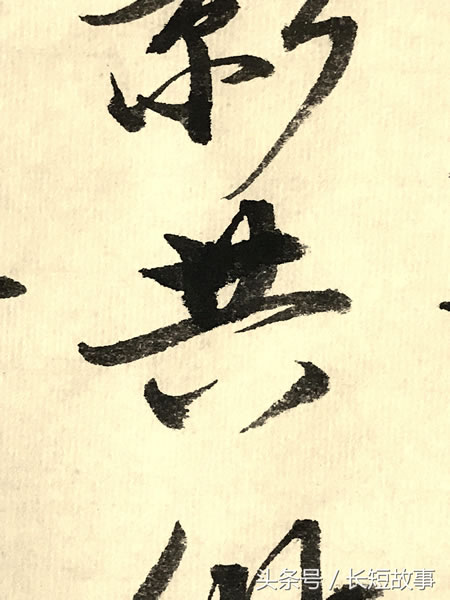 影
共
头条号 / 长短故事